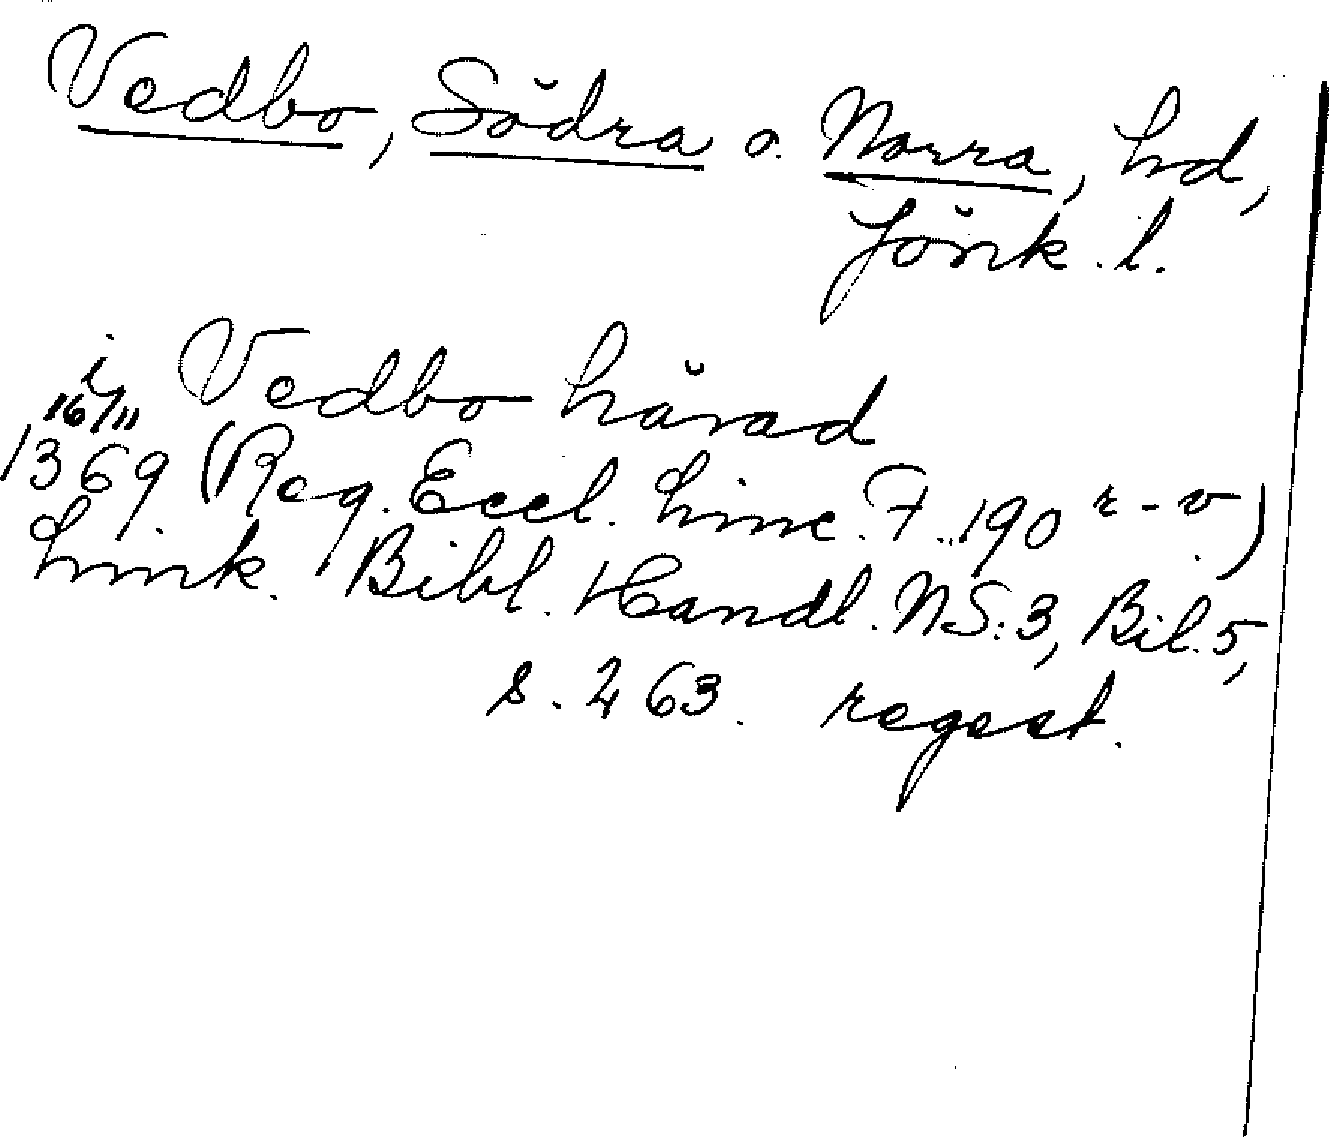 Vedbo, Södra o. Norra, hd,
Jönk. l.
i Vedbo härad
16/11
1369 (Reg. Eccl. Linc. F. 190 r-v)
Link. Bibl. Handl. NS: 3, Bil. 5,
s. 263. regest.